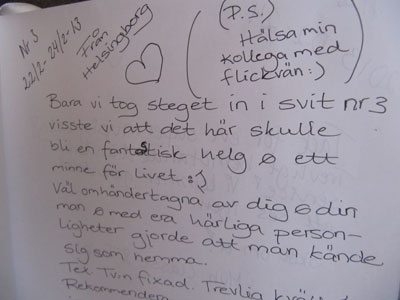 Nr 3
22/2-24/2-13
Från
Helsingborg
(P.S.)
Hälsa min
kollega med
flickvän:)
Bara vi tog steget in i svit nr 3
visste vi att det här skulle
bli en fantastisk helg o ett
minne för livet :)
Väl omhändertagna av dig o din
man o med era härliga person-
ligheter gjorde att man kände
sig som hemma.
Tex Tv:n fixad. Trevlig
Rekommendera